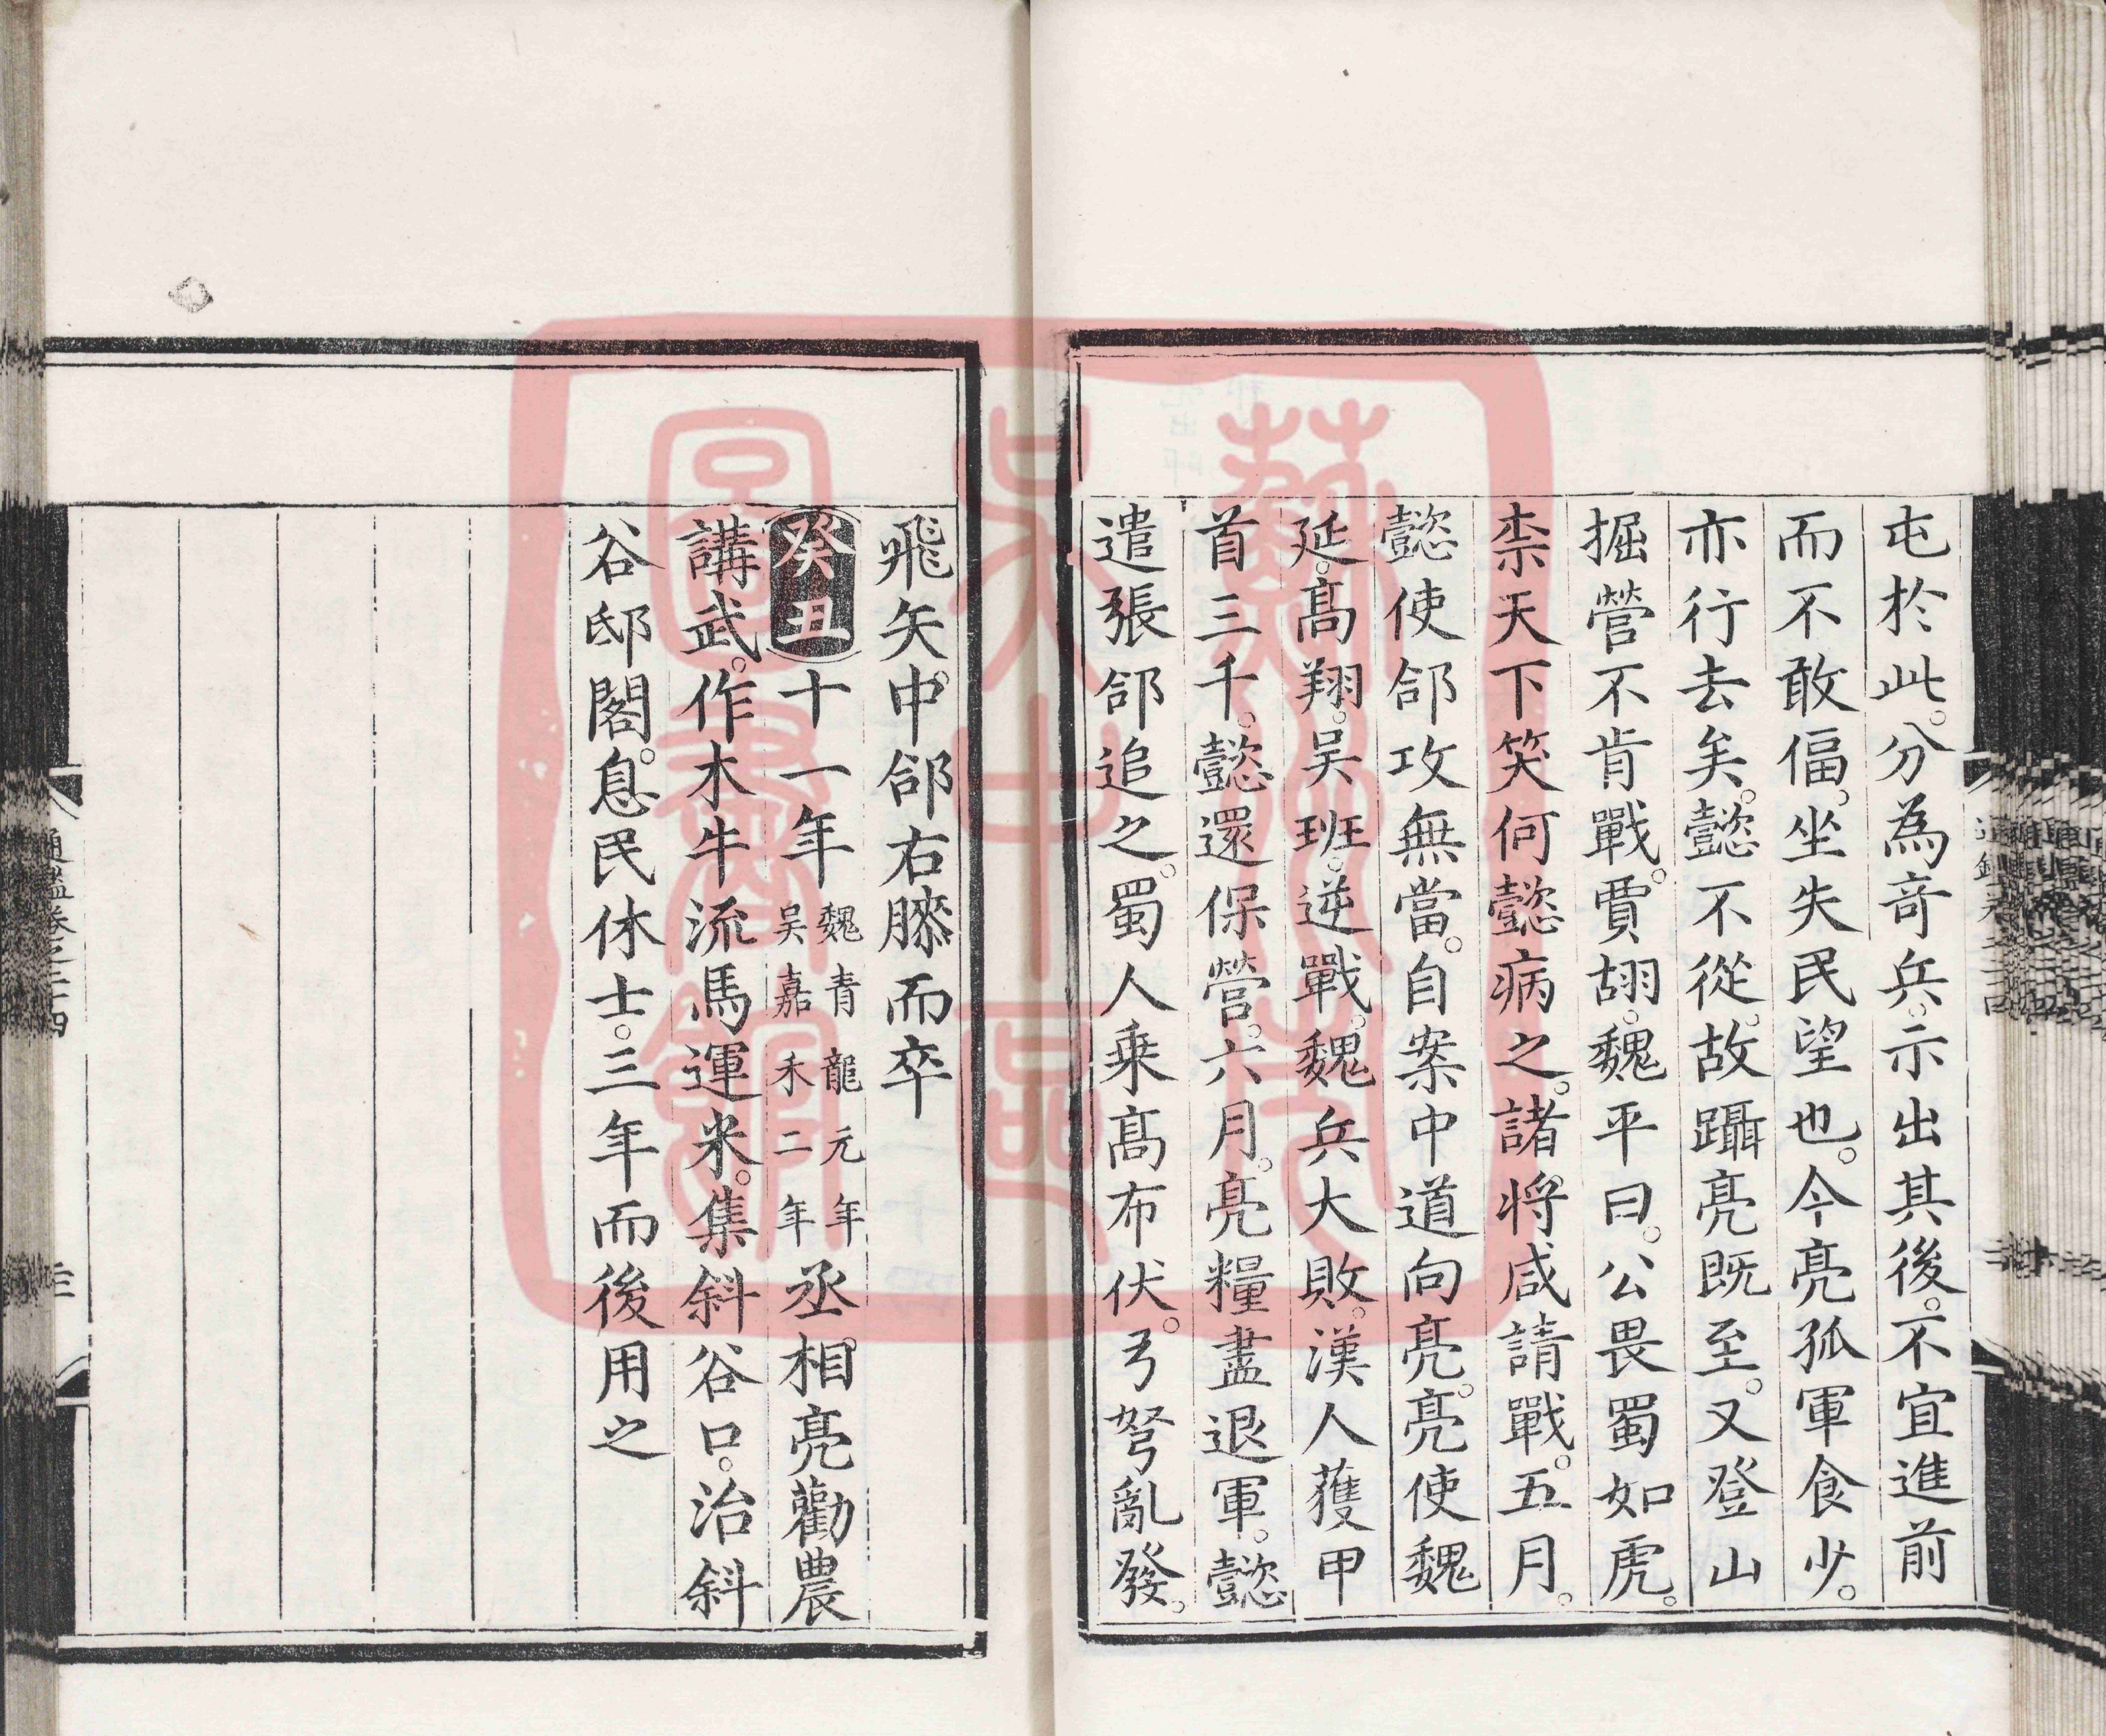 屯於此。分為竒兵。示出其後。不宜進前
而不敢偪。坐失民望也。今亮孤軍食少。
亦行去矣。懿不從。故躡亮既至。又登山
掘營不肯戰。賈詡。魏平曰。公畏蜀如虎。
柰天下笑何懿病之。諸將咸請戰。五月。
懿使郃攻無當。自案中道向亮。亮使魏
延。髙翔。吴班。逆戰。魏兵大敗。漢人獲甲
首三千。懿還保營。六月。亮糧盡退軍。懿
遣張郃追之。蜀人乗髙布伏。弓弩亂發。
飛矢。中郃右膝而卒
癸丑十一年魏青龍元年吴嘉禾二年丞相亮勸農
講武。作木牛流馬運米。集斜谷口。治斜
谷邸閣。息民休士。三年而後用之
通鑑卷之二十四
三
蘇州
吴中區
圖書館